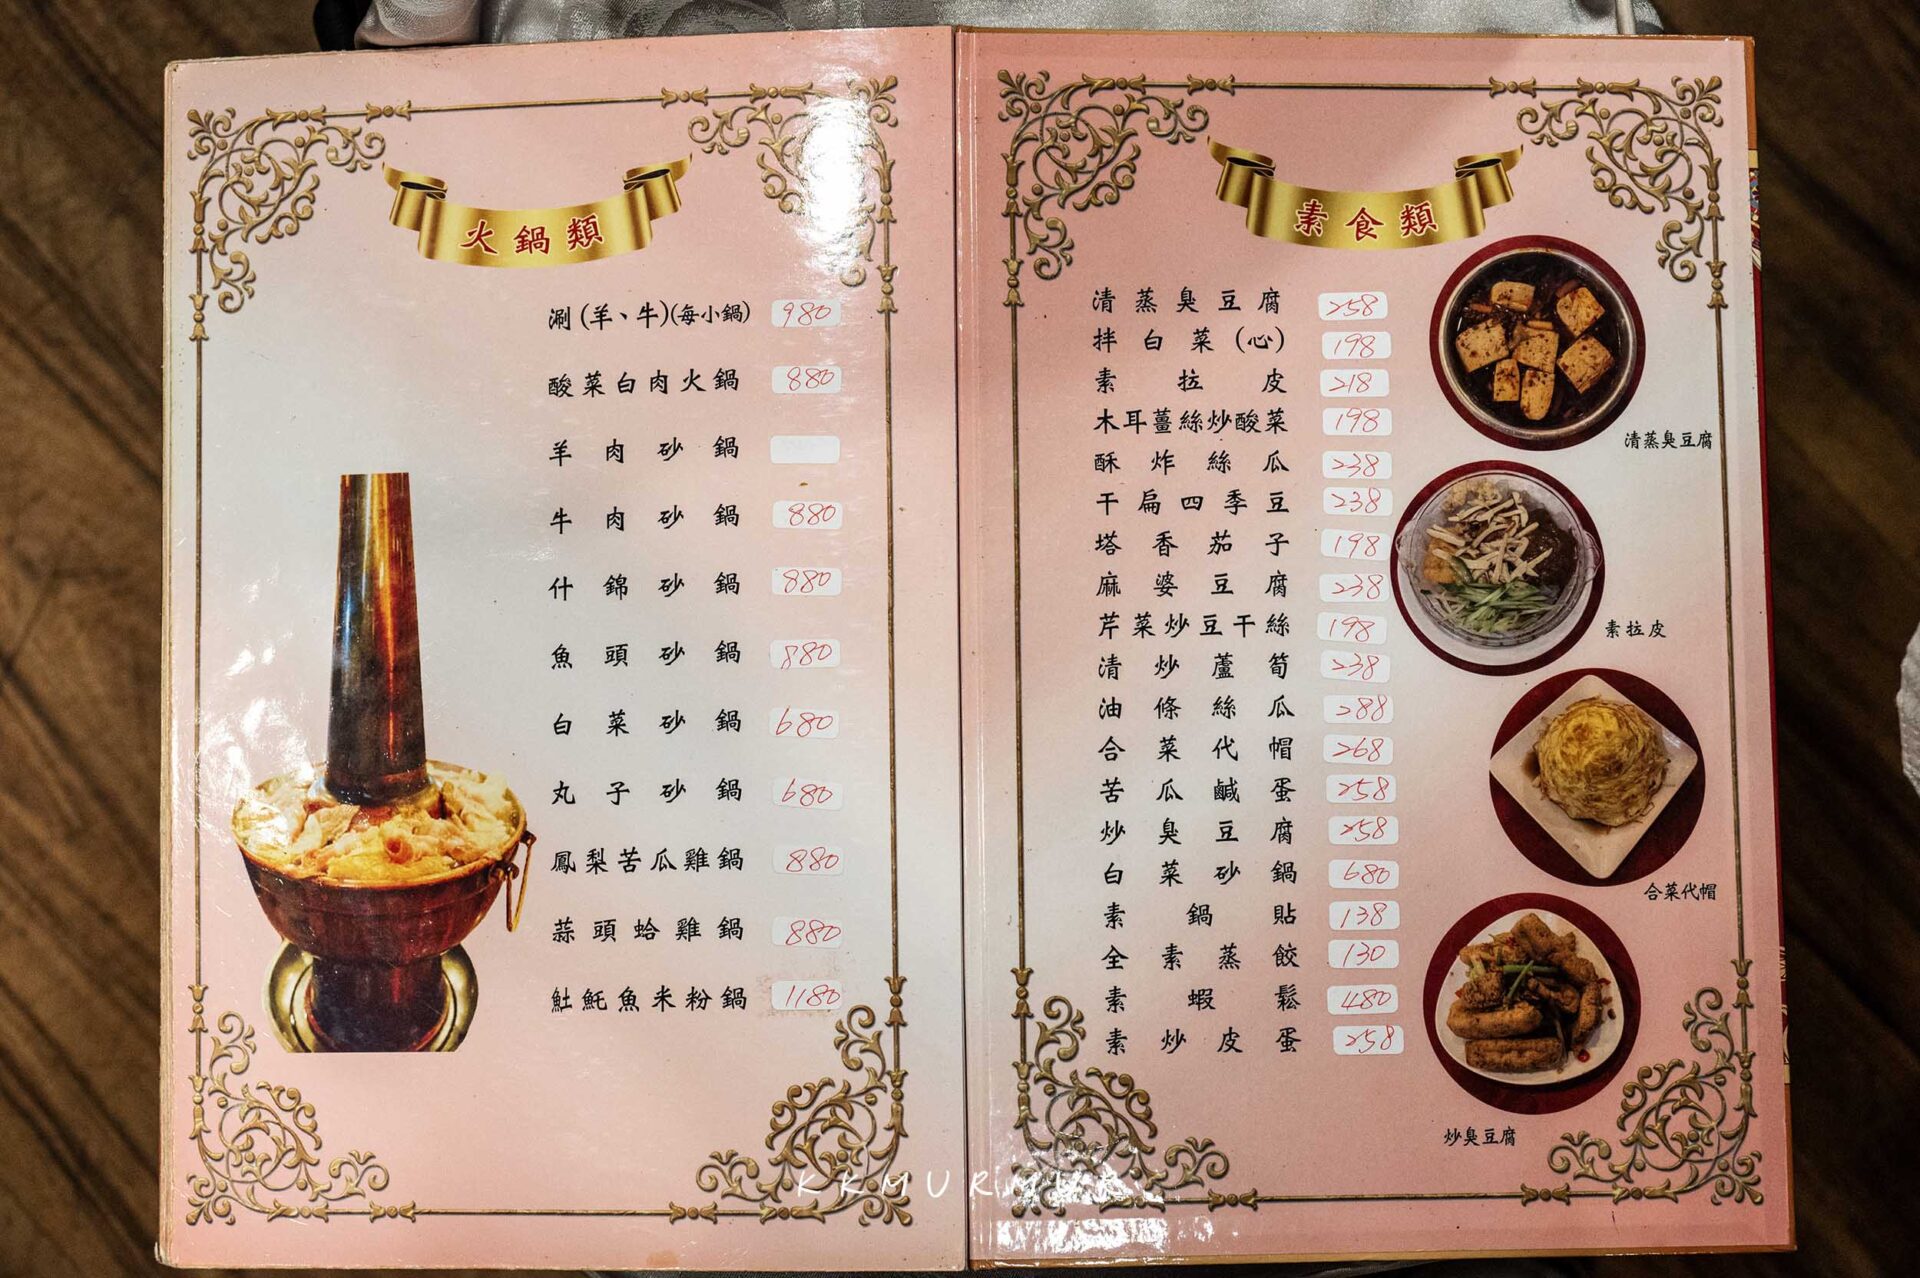 火鍋類
涮(羊、牛)(每小鍋) 980
酸菜白肉火鍋 880
羊肉砂鍋
牛肉砂鍋 880
什錦砂鍋 880
魚頭砂鍋 880
白菜砂鍋 680
丸子砂鍋 680
鳳梨苦瓜雞鍋 880
蒜頭蛤雞鍋 880
魠魚米粉鍋 1180
素食類
清蒸臭豆腐 258
拌白菜(心) 198
素拉皮 218
木耳薑絲炒酸菜 198
酥炸絲瓜 238
干扁四季豆 238
塔香茄子 198
麻婆豆腐 238
芹菜炒豆干絲 198
清炒蘆筍 238
油條絲瓜 288
合菜代帽 268
苦瓜鹹蛋 258
炒臭豆腐 258
白菜砂鍋 680
素鍋貼 138
全素蒸餃 130
素蝦鬆 480
素炒皮蛋 258
清蒸臭豆腐
素拉皮
合菜代帽
炒臭豆腐